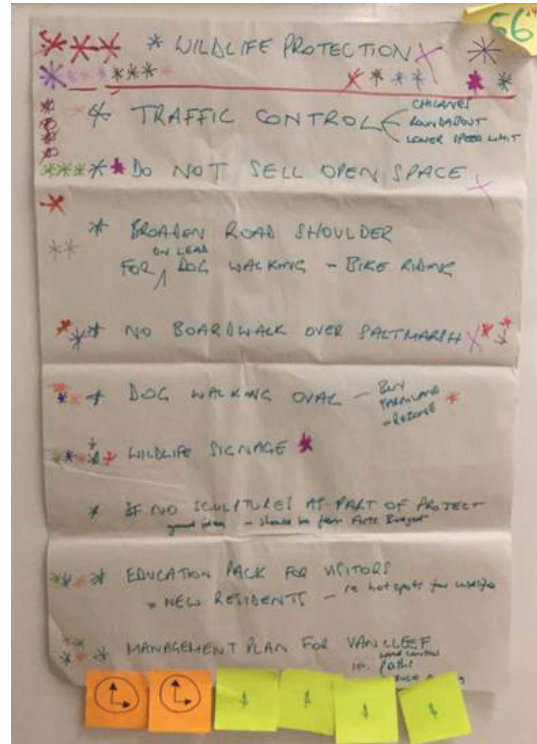 56
* WILDLIFE PROTECTION
* TRAFFIC CONTROL
CHICANES
ROUNDABOUT
LOWER SPEED LIMIT
* DO NOT SELL OPEN SPACE
* BROADEN ROAD SHOULDER
ON LEAD
FOR DOG WALKING - BIKE RIDING
* NO BOARDWALK OVER SALTMARSH
* DOG WALKING OVAL - BUY
FARMLAND
- REZONE
* WILDLIFE SIGNAGE
* NO SCULPTURES AS PART OF PROJECT
good idea - should be from Arts Budget
* EDUCATION PACK FOR VISITORS
+ NEW RESIDENTS - re hot spots for wildlife
* MANAGEMENT PLAN FOR VAN CLEEF
paths